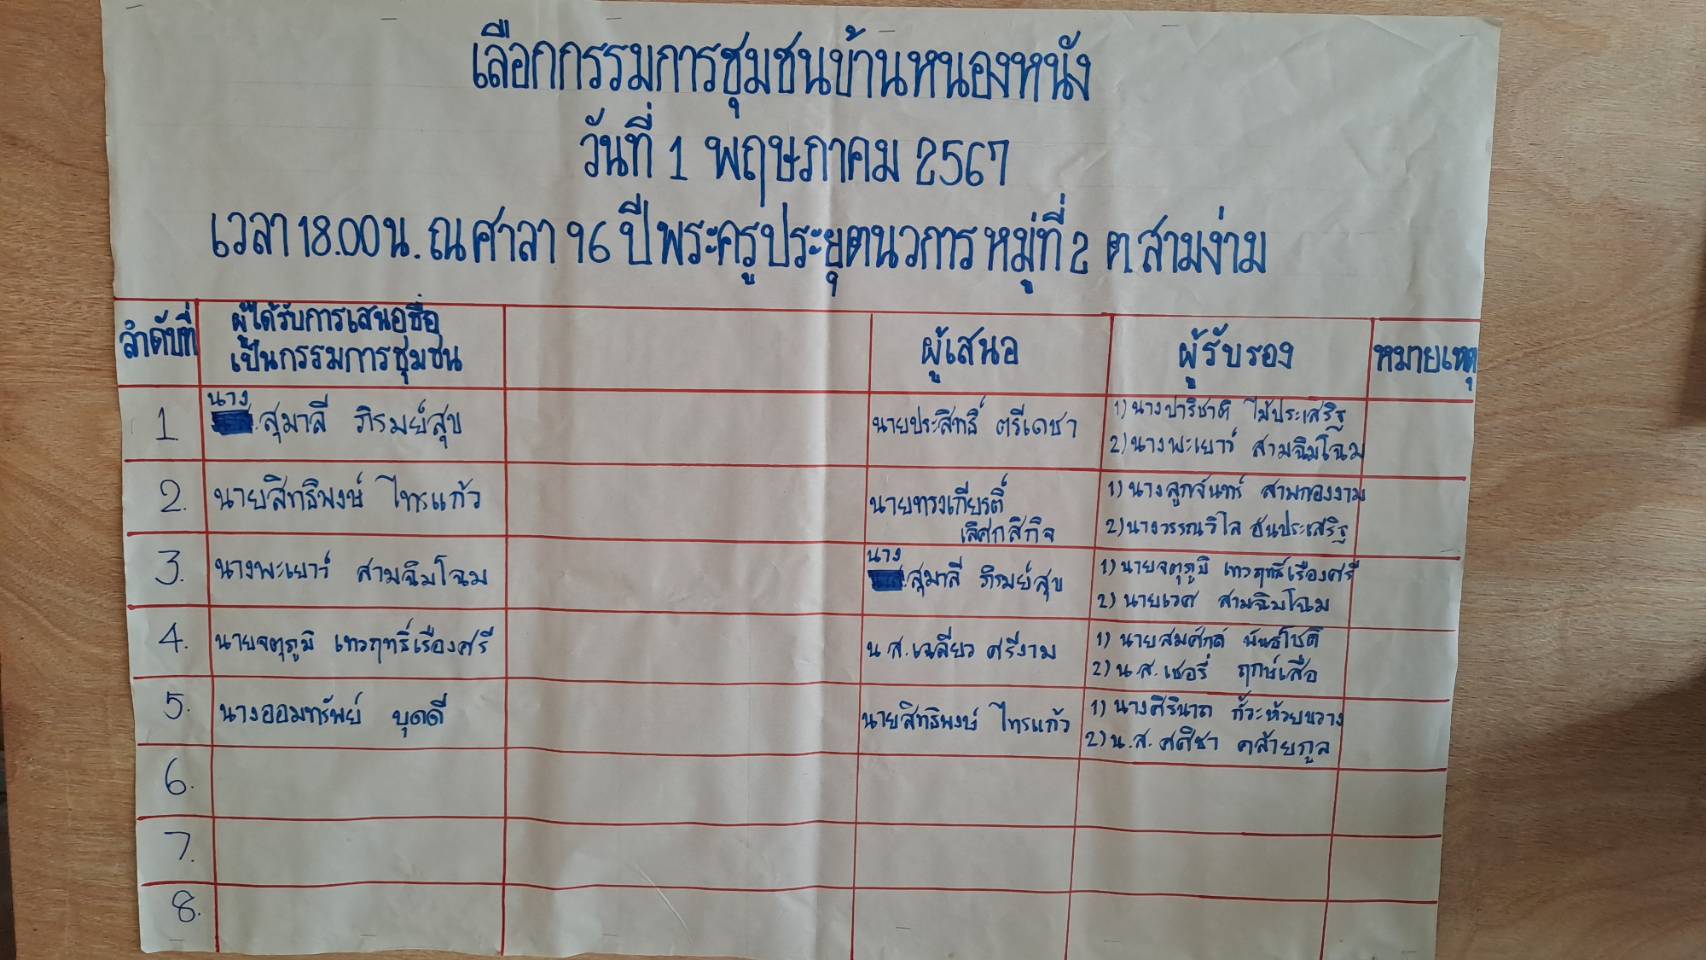 เลือกกรรมการชุมชนบ้านหนองหนัง
วันที่ 1 พฤษภาคม 2567
เวลา 18.00 น. ณ ศาลา 96 ปี พระครูประยุตนวการ หมู่ที่ 2 ต.สามง่าม
ลำดับที่ ผู้ได้รับการเสนอชื่อ ผู้เสนอ ผู้รับรอง หมายเหตุ
เป็นกรรมการชุมชน
นาง
1 สุมาลี ภิรมย์สุข นายประสิทธิ์ ตรีเดชา 1) นางปาริชาติ ไม้ประเสริฐ
2) นางพะเยาว์ สามฉิมโฉม
2. นายสิทธิพงษ์ ไทรแก้ว นายทรงเกียรติ์ 1) นางลูกจันทร์ สามกองงาม
เลิศกสิกิจ 2) นางวรรณวิไล ประเสริฐ
นาง
3. นางพะเยาว์ สามฉิมโฉม สุมาลี ภิรมย์สุข 1) นายจตุภูมิ เทวฤทธิ์เรืองศรี
2) นายเวศ สามฉิมโฉม
4. นายจตุภูมิ เทวฤทธิ์เรืองศรี น.ส.เฉลียว ศรีงาม 1) นายสมศักดิ์ พันธ์โชติ
2) น.ส.เชอรี่ ฤกษ์เสือ
5. นางออมทรัพย์ บุดดี นายสิทธิพงษ์ ไทรแก้ว 1) นางศิรินาถ ก๊วะห้วยขวาง
2) น.ส.ศศิชา คล้ายกูล
6.
7.
8.